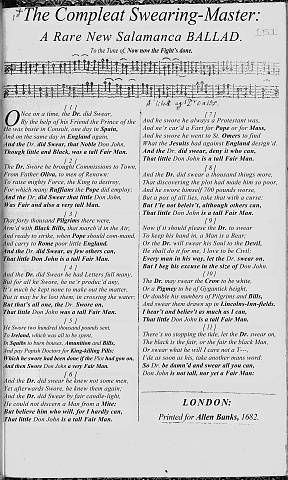 The Compleat Swearing-Master:
A Rare New Salamanca BALLAD.
To the Tune of, Now now the Fight's done.
[ 1 ]
ONce on a time, the Dr. did Swear,
By the help of his Friend the Prince of the
He was busie in Consult, one day in Spain,
And on the same day in England again.
And the Dr. did Swear, that Noble Don John,
Though little and Black, was a tall Fair Man.
[ 2 ]
The Dr. Swore he brought Commissions to Town,
From Father Oliva, to men of Renown:
To raise mighty Force, the King to destroy,
For which many Ruffians the Pope did employ:
And the Dr. did Swear that little Don John,
Was Fair and also a very tall Man.
[ 3 ]
That forty thousand Pilgrims there were,
Arm'd with Black Bills, that march'd in the Air,
And ready to strike, when Pope should command,
And carry to Rome poor little England.
And the Dr. did Swear, as fire others can
That little Don John is a tall Fair Man.
[ 4 ]
And the Dr. did Swear he had Letters full many,
But for all he Swore, he ne'r produc'd any,
It's much he kept none to make out the matter,
But it may be he lost them, in crossing the water:
But that's all one, the Dr. Swore on,
That little Don John was a tall Fair Man.
[ 5 ]
He Swore two hundred thousand pounds sent,
To Ireland, which was all to be spent,
In Spahies to burn houses, Amunition and Bills,
And pay Popish Doctors for King-killing Pills:
Which he swore had been done if the Plot had gon on,
And then Swore Don John a very Fair Man.
[ 6 ]
And the Dr. did Swear he knew not some men,
Yet afterwards Swore, he knew them again;
And the Dr. did Swear by fair candle-light,
He could not discern a Man from a Mite:
But believe him who will, for I hardly can,
That little Don John is a tall Fair Man.
[ 7 ]
And he swore he always a Protestant was,
And ne'r car'd a Fart for Pope or for Mass,
And he swore he went to St. Omers to find
What the Jesuits had against England design'd:
And the Dr. did swear, deny it who can,
That little Don John is a tall Fair Man.
[ 8 ]
And the Dr. did swear a thousand things more,
That discovering the plot had made him so poor,
And he swore himself 700 pounds worse,
But a pox of all lies, take that with a curse:
But I'le not beleiv't, although others can,
That little Don John is a tall Fair Man.
[ 9 ]
Now if it should please the Dr. to swear
To keep his hand in, a Man is a Bear;
Or the Dr. will swear his Soul to the Devil,
He shall do it for me, I love to be Civil:
Every man in his way, let the Dr. swear on,
But I beg his excuse in the size of Don John.
[ 10 ]
The Dr. may swear the Crow to be white,
Or a Pigmey to be of Gygantick height,
Or double his numbers of Pilgrims and Bills,
And swear them drawn up in Lincolns-Inn-fields.
I hear't and believe't as much as I can,
That little Don John is a tall Fair Man.
[ 11 ]
There's no stopping the tide, let the Dr. swear on,
The black is the fair, or the fair the black Man,
Or swear what he will I care not a T---,
I'le as soon as his, take another mans word:
So Dr. be damn'd and swear all you can,
Don John is not tall, nor yet a Fair Man:
LONDON:
Printed for Allen Banks, 1682.